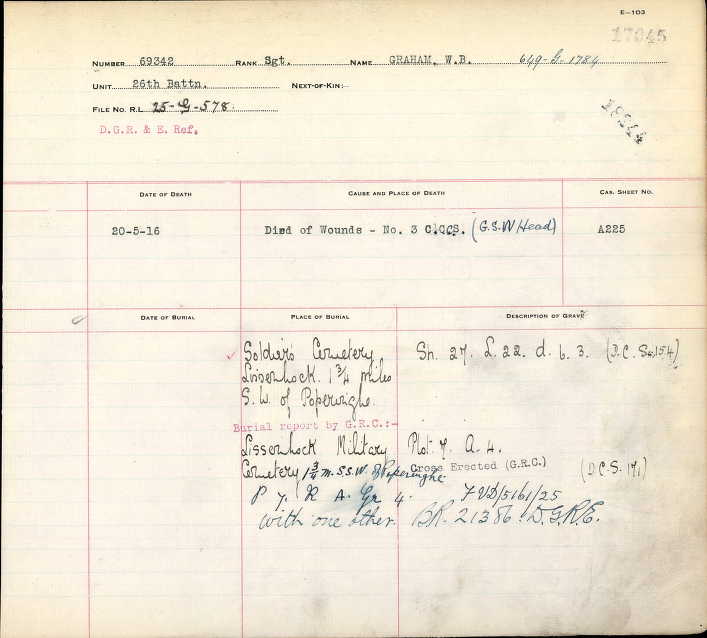 E-103
17045
NUMBER 69342 RANK Sgt. NAME GRAHAM, W.B. 649-G-1784
UNIT 26th Battn. NEXT-OF-KIN:
FILE NO. R.L. 25-G-578
18544
D.G.R. & E. Ref.
DATE OF DEATH CAUSE AND PLACE OF DEATH CAS. SHEET NO.
20-5-16 Died of Wounds - No. 3 C.CCS. (G.S.W Head) A225
DATE OF BURIAL PLACE OF BURIAL DESCRIPTION OF GRAVE
Soldier's Cemetery Sh. 27. L. 22. d. 6. 3. (D.C.S. 154)
Lissenhock. 1 3/4 miles
S.W. of Poperinghe.
Burial report by G.R.C.:-
Lissenhock Military Plot 7. A. 4.
Cemetery 1 3/4 m. S.S.W. of Poperinghe. Cross Erected (G.R.C.) (D.C.S. 171)
P 7. R A. Gr 4. 7VD/5161/25
With one other. BR. 21386. D.G.R.E.